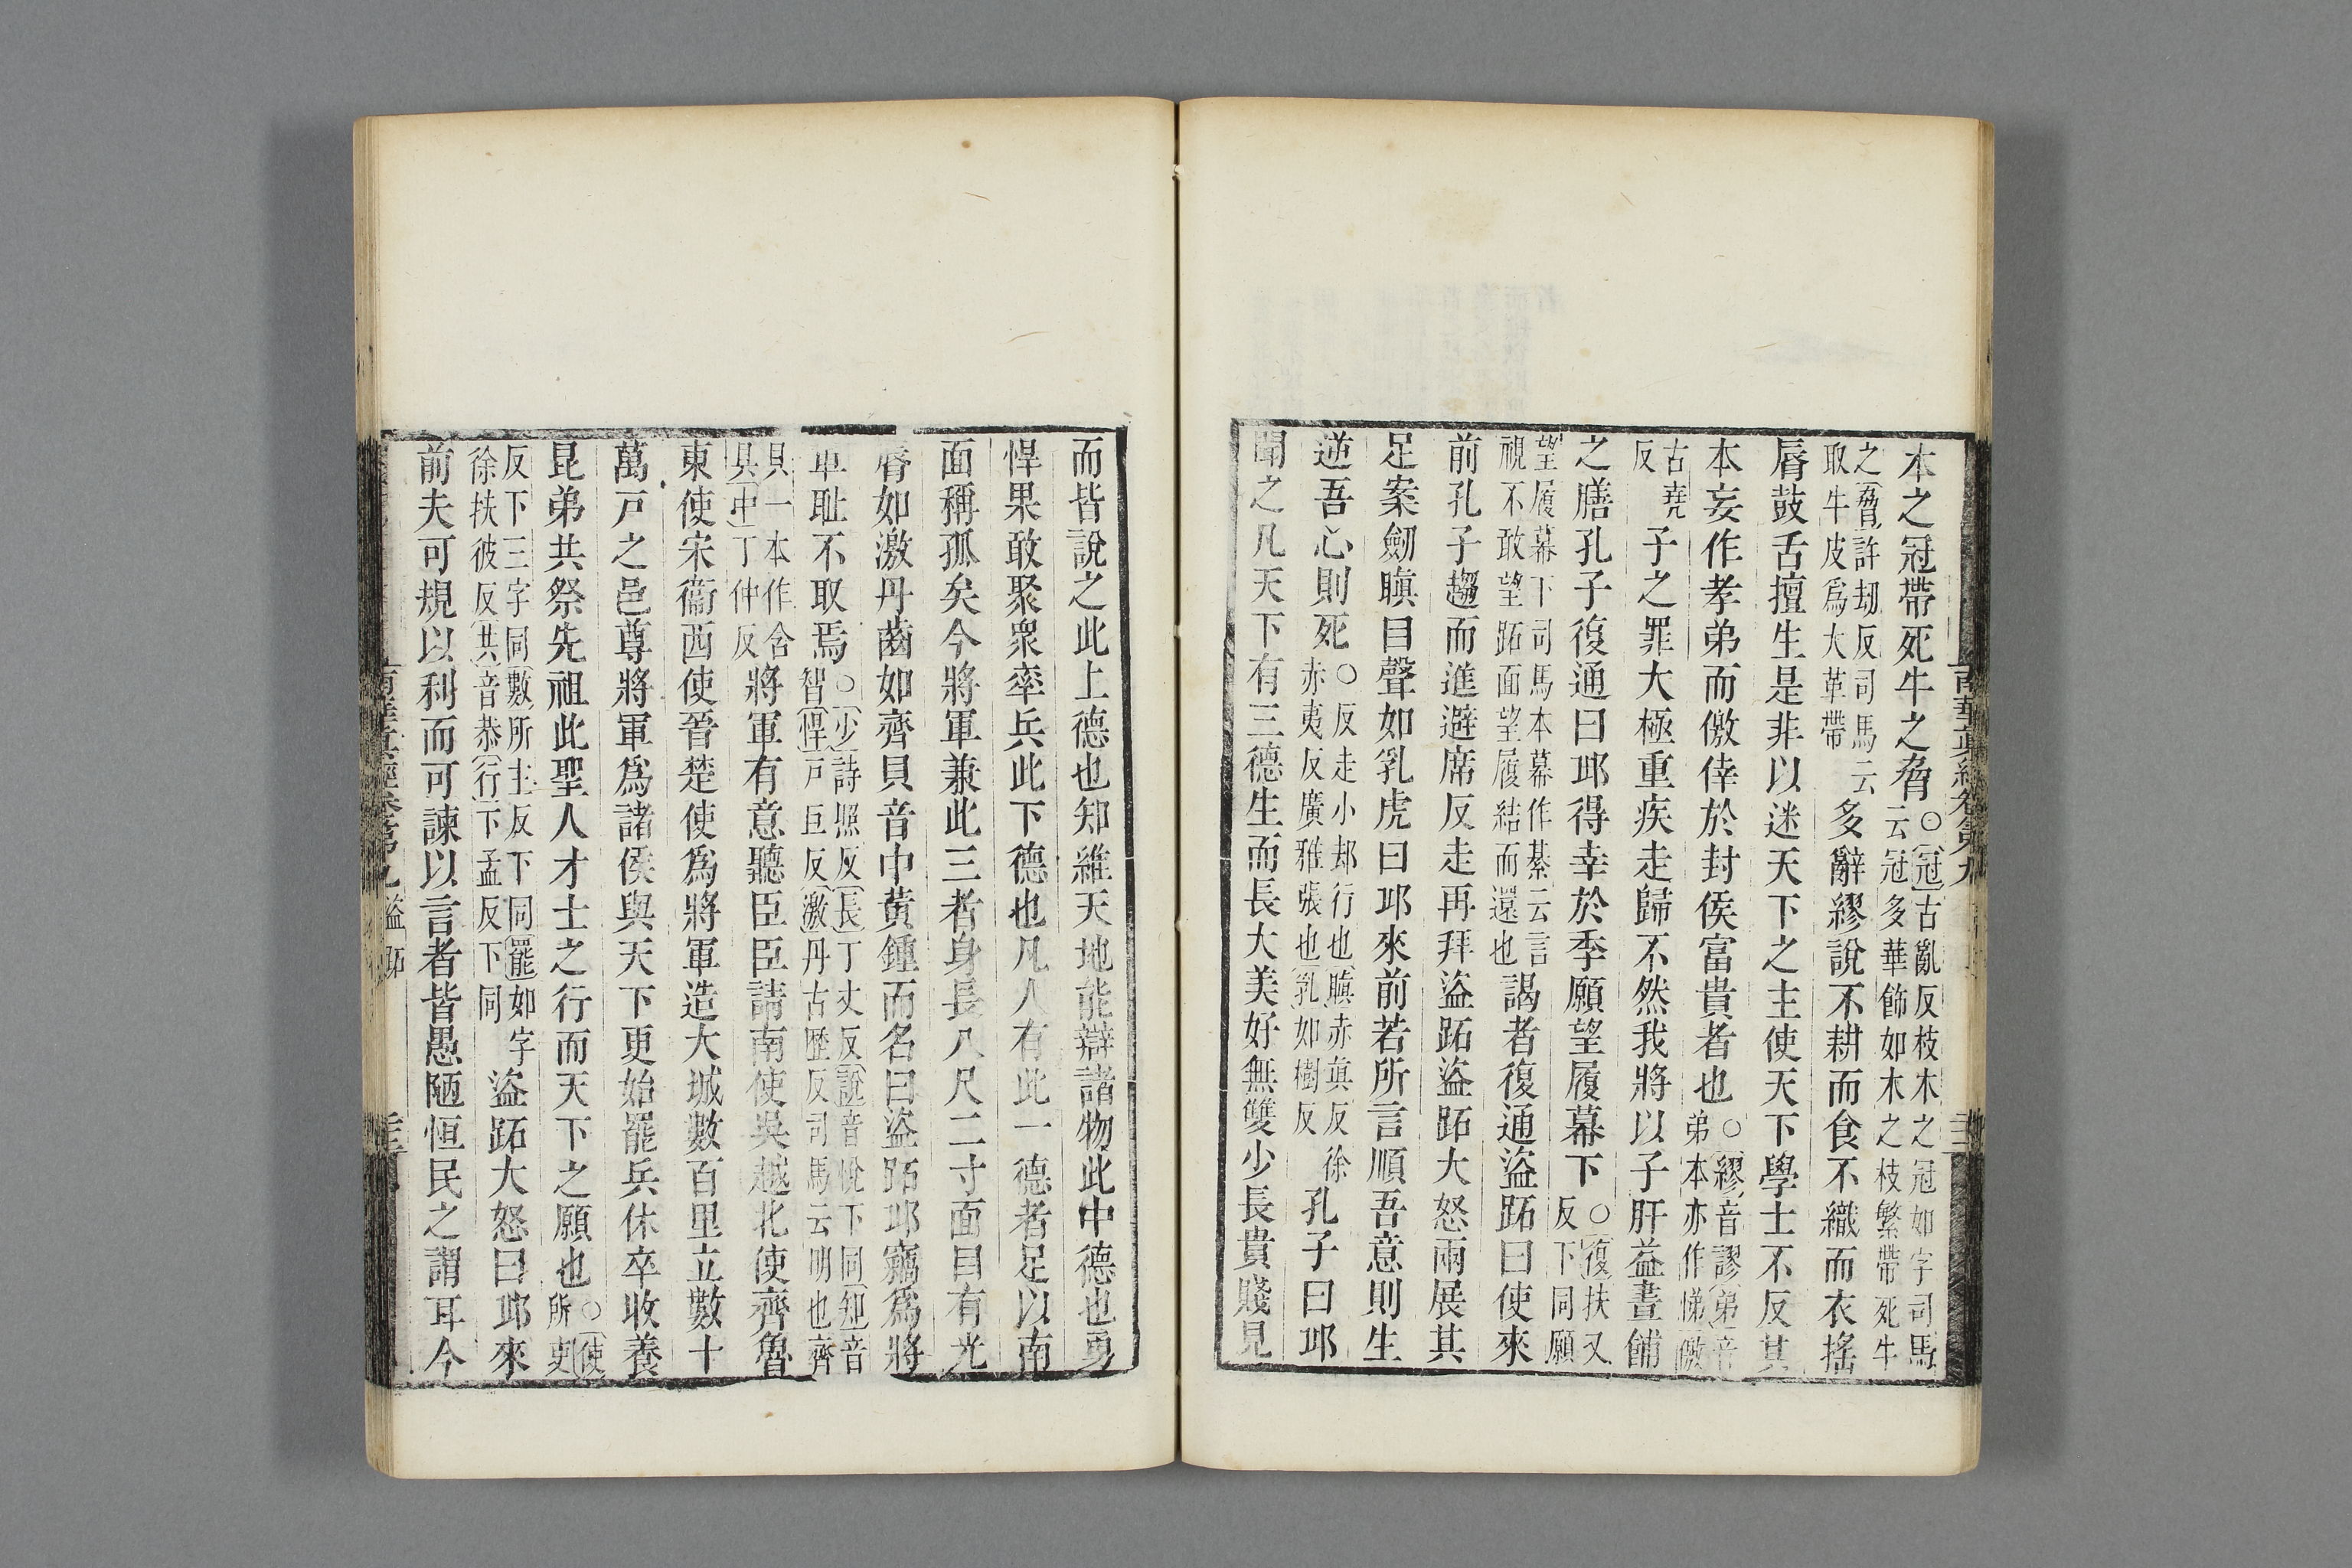 南華眞經卷第九
本之冠帶死牛之脅○冠古亂反枝木之冠如字司馬云冠多華飾如木之枝繁帶死牛
之脅許刧反司馬云取牛皮爲大革帶多辭繆說不耕而食不織而衣搖
脣鼓舌擅生是非以迷天下之主使天下學士不反其
本妄作孝弟而儌倖於封侯富貴者也○繆音謬弟音弟本亦作悌儌
古堯反子之罪大極重疾走歸不然我將以子肝益晝餔
之膳孔子復通曰丘得幸於季願望履幕下○復扶又反下同願
望履幕下司馬本幕作綦云言視不敢望跖面望履結而還也謁者復通盜跖曰使來
前孔子趨而進避席反走再拜盜跖盜跖大怒兩展其
足案劒瞋目聲如乳虎曰丘來前若所言順吾意則生
逆吾心則死○反走小却行也瞋赤眞反徐赤夷反廣雅張也乳如樹反孔子曰丘
聞之凡天下有三德生而長大美好無雙少長貴賤見
而皆說之此上德也知維天地能辯諸物此中德也勇
悍果敢聚衆率兵此下德也凡人有此一德者足以南
面稱孤矣今將軍兼此三者身長八尺二寸面目有光
脣如激丹齒如齊貝音中黃鍾而名曰盜跖丘竊爲將
軍耻不取焉○少詩照反長丁丈反說音悅下同知音智悍戸旦反激丹古歴反司馬云明也齊
貝一本作含具中丁仲反將軍有意聽臣臣請南使吳越北使齊魯
東使宋衞西使晉楚使爲將軍造大城數百里立數十
萬戸之邑尊將軍爲諸侯與天下更始罷兵休卒收養
昆弟共祭先祖此聖人才士之行而天下之願也○使所吏
反下三字同數所主反下同罷如字徐扶彼反共音恭行下孟反下同盜跖大怒曰丘來
前夫可規以利而可諫以言者皆愚陋恒民之謂耳今
南華眞經卷第九 盜跖